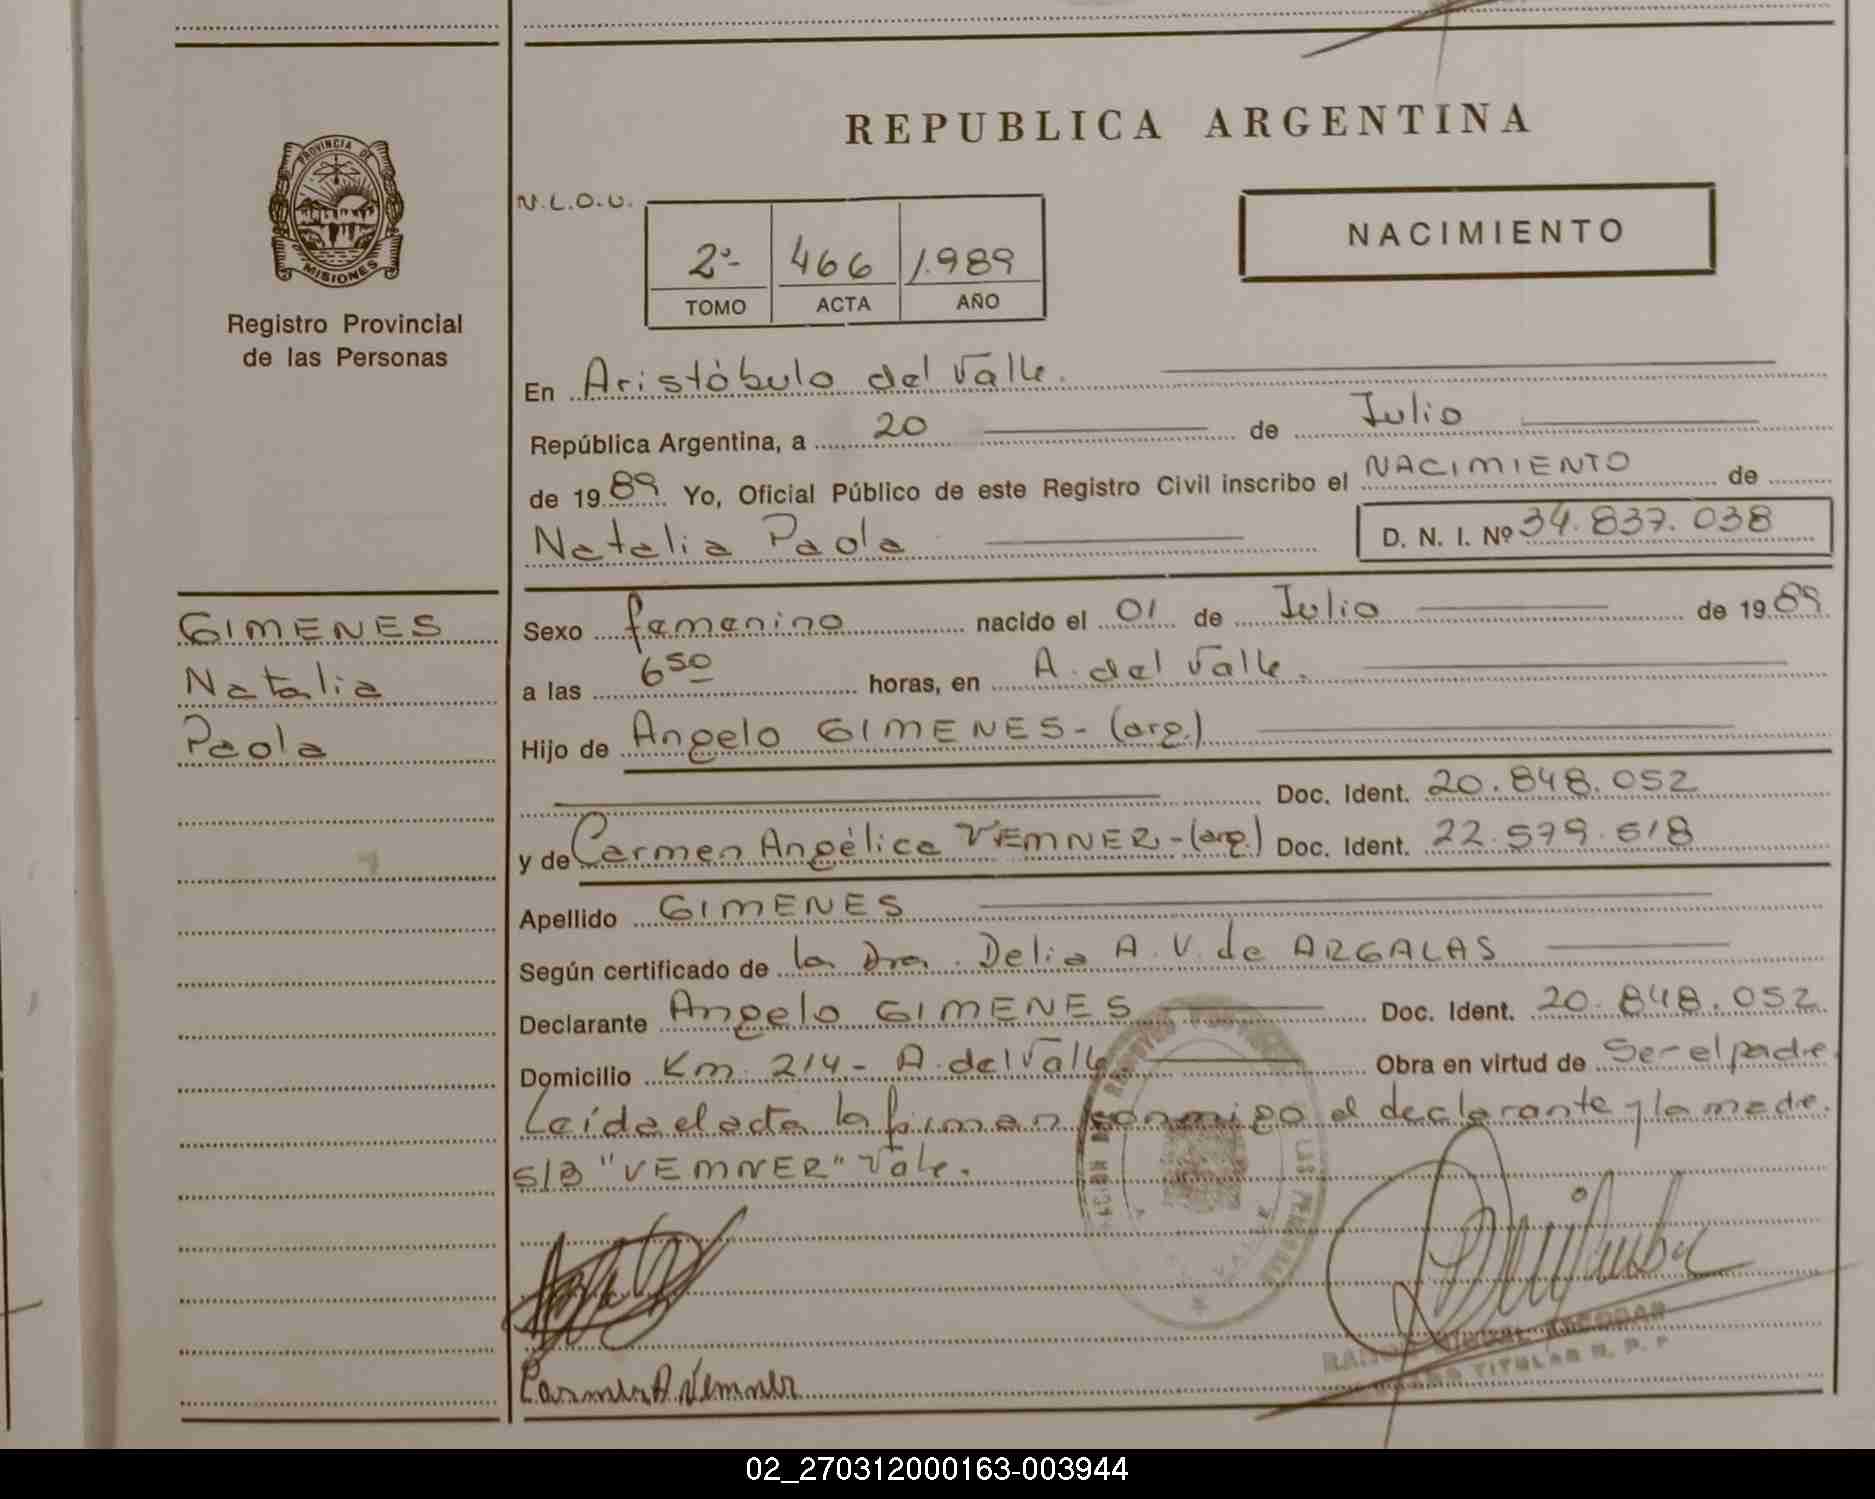 REPUBLICA ARGENTINA
PROVINCIA DE
MISIONES
Registro Provincial
de las Personas
N.L.O.U.
2º- 466 1.989
TOMO ACTA AÑO
NACIMIENTO
En Aristóbulo del Valle.
República Argentina, a 20 de Julio
de 1989 Yo, Oficial Público de este Registro Civil inscribo el NACIMIENTO de
Natalia Paola D. N. I. Nº 34.837.038
GIMENES
Natalia
Paola
Sexo femenino nacido el 01 de Julio de 1989
a las 6 50 horas, en A. del Valle.
Hijo de Angelo GIMENES- (arg.)
Doc. Ident. 20.848.052
y de Carmen Angélica VEMNER-(arg.) Doc. Ident. 22.579.518
Apellido GIMENES
Según certificado de la Dra. Delia A. V. de ARGALAS
Declarante Angelo GIMENES Doc. Ident. 20.848.052
Domicilio Km. 214- A. del Valle Obra en virtud de Ser el padre.
Leída el acta la firman conmigo el declarante y la madre.
S/B "VEMNER" Vale.
Carmen A. Vemner
TITULAR R. P. P
02_270312000163-003944